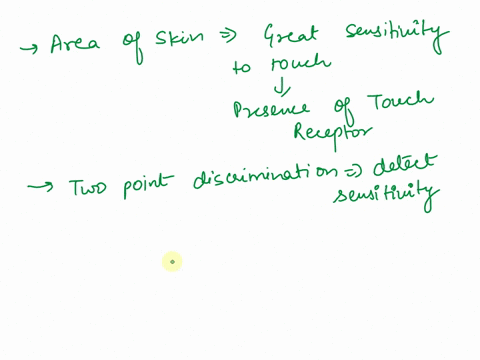 → Area of skin ⇒ Great sensitivity
to touch
↓
Presence of Touch
Receptor
→ Two point discrimination ⇒ detect
sensitivity